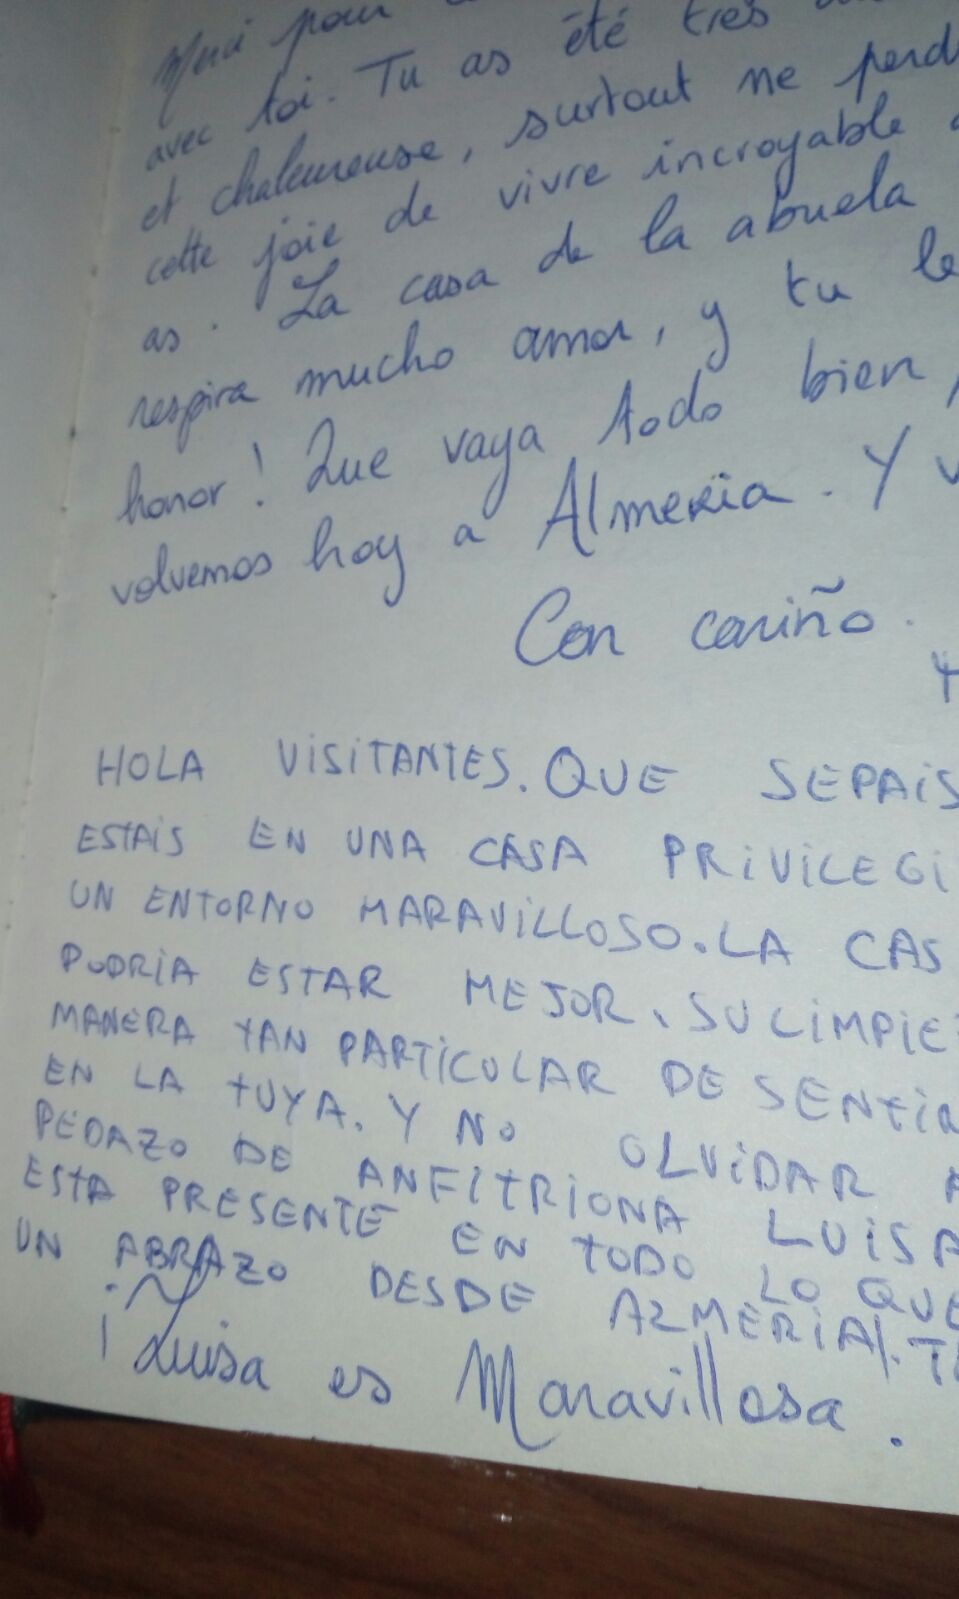 Merci pour
avec toi. Tu as été très
et chaleureuse, surtout ne perd
cette joie de vivre incroyable
as. La casa de la abuela
respira mucho amor, y tu le
honor! Que vaya todo bien,
volvemos hoy a Almería. Y
Con cariño.
HOLA VISITANTES. QUE SEPAIS
ESTAIS EN UNA CASA PRIVILEGI
UN ENTORNO MARAVILLOSO. LA CAS
PODRIA ESTAR MEJOR, SU LIMPIE
MANERA TAN PARTICULAR DE SENTIR
EN LA TUYA. Y NO OLVIDAR A
PEDAZO DE ANFITRIONA LUISA
ESTA PRESENTE EN TODO LO QUE
UN ABRAZO DESDE ALMERIA!. T
¡Luisa es Maravillosa.